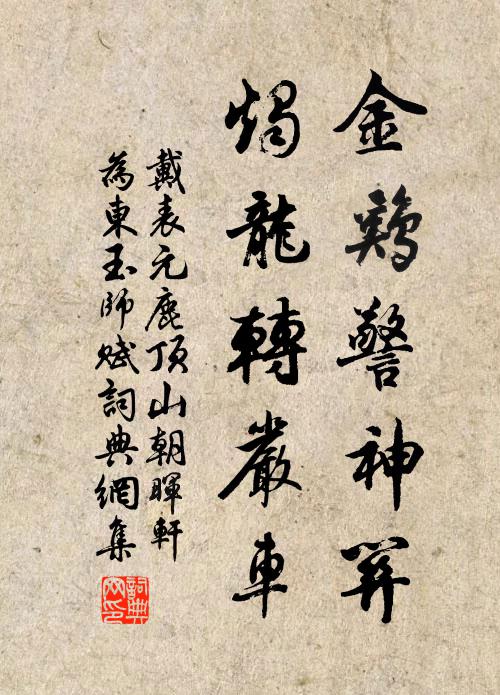 金鷄警神羿
燭龍轉嚴車
戴表元鹿頂山朝暉軒
為東玉師賦詞典網集
詞典
网印